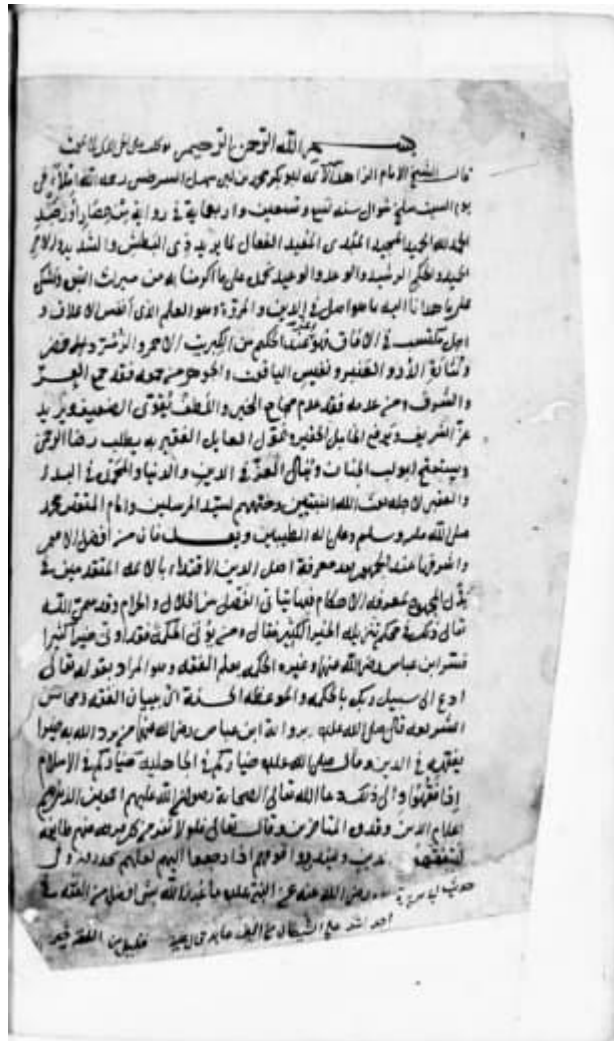 بسم الله الرحمن الرحيم
قال الشيخ الامام الزاهد الائمة ابو بكر محمد بن ابي سهل السرخسي رحمه الله املاء في
يوم السبت سلخ شوال سنه تسع وسبعين واربعماية في رواية
الحمد لله المجيد المبدي المعيد الفعال لما يريد ذي البطش الشديد والامر
الحميد والحكم الرشيد والوعد والوعيد نحمده على ما اكرمنا به من ميراث النبي ونشكره
على ما هدانا اليه ما هو اصل في الدين والمروة وهو العلم الذي انفس الاعلاق و
اجل مكتسب في الآفاق فهو عند الحكيم من الكبريت الاحمر والزمرد
ونثارة الدر والعنبر ونفيس الياقوت والجوهر من جمعه فقد جمع العز
والشرف ومن عدمه فقد عدم مجامع الخير واللطف يقوى الضعيف ويزيد
عز الشريف ويرفع الخامل الحقير ويمول العايل الفقير به يطلب رضا الرحمن
ويستفتح ابواب الجنان وينال العز في الدين والدنيا والمحمدة في البدا
والعقبى لاجله بعث الله النبيين وختمهم بسيد المرسلين وامام المتقين محمد
صلى الله عليه وسلم وعلى اله الطيبين وبعد فان من افضل الامور
واشرفها عند الجمهور بعد معرفة اصل الدين الاقتداء بالائمة المتقدمين في
بذل المجهود لمعرفة الاحكام فبها يتاتى الفصل من الحلال والحرام وقد سمى الله
تعالى ذلك في محكم تنزيله الخير الكثير فقال ومن يؤتى الحكمة فقد اوتي خيرا كثيرا
فسر ابن عباس رضي الله عنهما وغيره الحكمة بعلم الفقه وهو المراد بقوله تعالى
ادع الى سبيل ربك بالحكمة والموعظة الحسنة اي ببيان الفقه ومحاسن
الشريعة قال صلى الله عليه برواية ابن عباس رضي الله عنهما من يرد الله به خيرا
يفقهه في الدين وقال صلى الله عليه خياركم في الجاهلية خياركم في الاسلام
اذا فقهوا والى ذلك دعا الله تعالى الصحابة رضوان الله عليهم اجمعين الذين هم
اعلام الدين وقدوة المتاخرين وقال تعالى فلولا نفر من كل فرقة منهم طايفة
ليتفقهوا الدين ولينذروا قومهم اذا رجعوا اليهم لعلهم يحذرون وفي
حديث رضي الله عنه عن النبي عليه ما عبد الله بشي افضل من الفقه في
اشد على الشيطان من الف عابد فقليل من الفقه خير